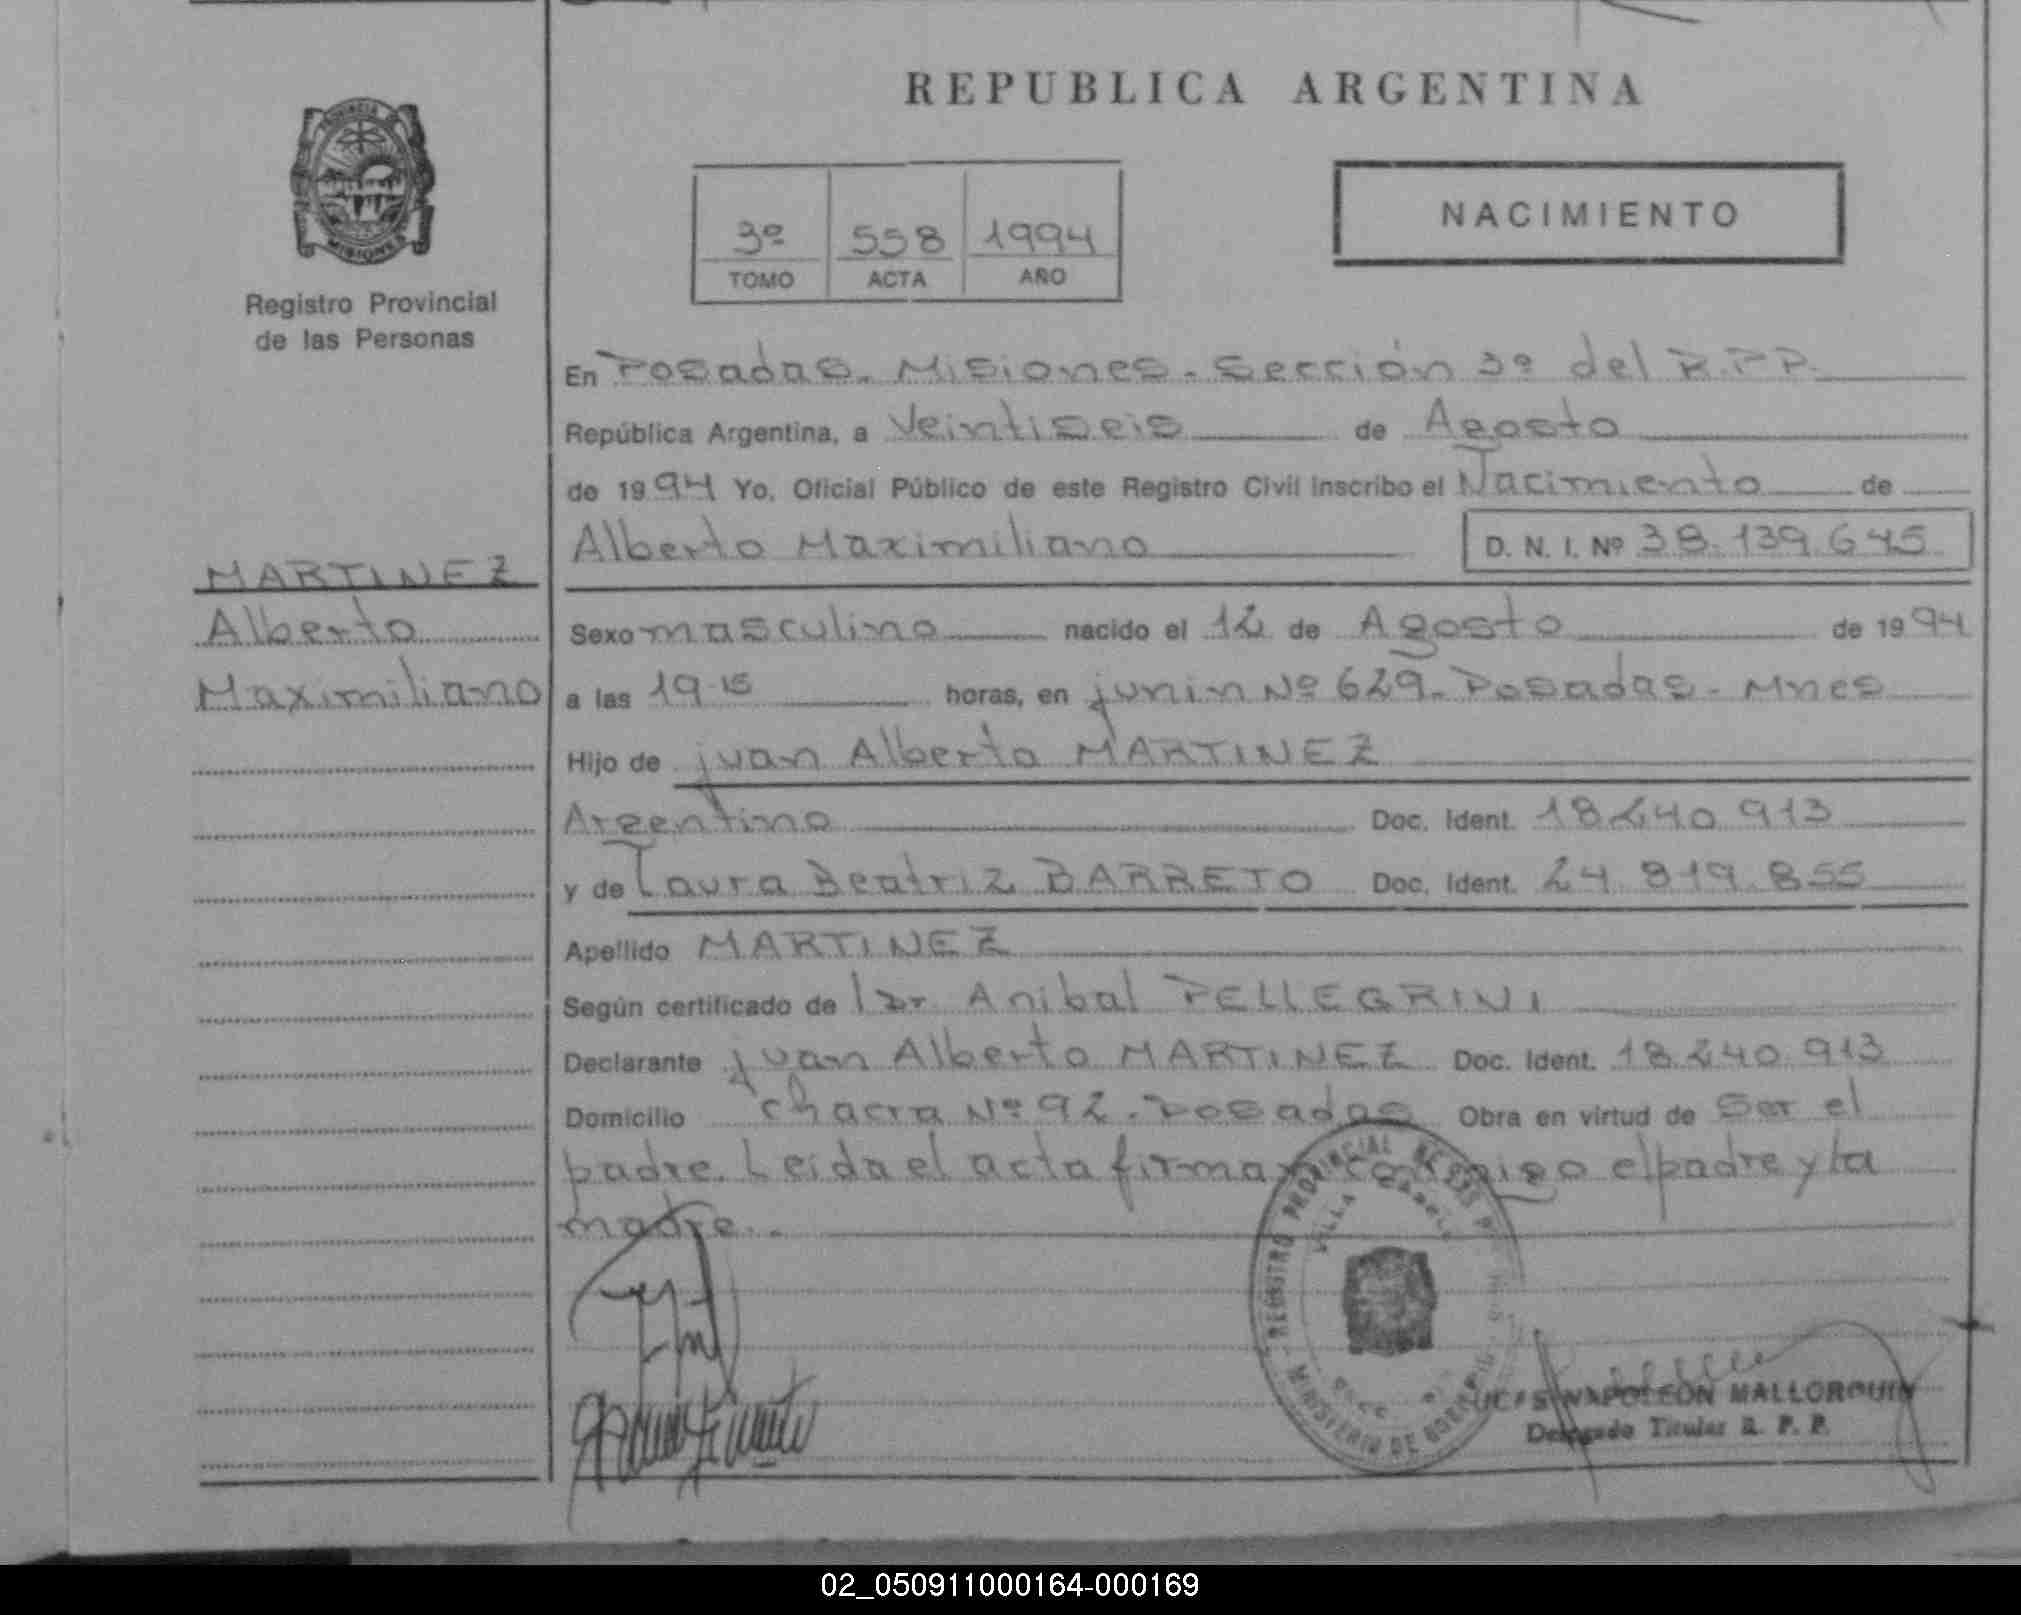 REPUBLICA ARGENTINA
PROVINCIA DE
MISIONES
Registro Provincial
de las Personas
3º 558 1994
TOMO ACTA AÑO
NACIMIENTO
En Posadas. Misiones. Sección 3º del R.P.P.
República Argentina, a Veintiseis de Agosto
de 1994 Yo, Oficial Público de este Registro Civil inscribo el Nacimiento de
Alberto Maximiliano D. N. I. Nº 38.139.645
MARTINEZ
Alberto
Maximiliano
Sexo masculino nacido el 12 de Agosto de 1994
a las 19.15 horas, en junin Nº 629. Posadas - Mnes
Hijo de juan Alberto MARTINEZ
Argentino Doc. Ident. 18.240.913
y de Laura Beatriz BARRETO Doc. Ident. 24.819.855
Apellido MARTINEZ
Según certificado de Dr. Anibal PELLEGRINI
Declarante juan Alberto MARTINEZ Doc. Ident. 18.240.913
Domicilio chacra Nº 92. Posadas Obra en virtud de Ser el
padre. Leida el acta firman conmigo el padre y la
madre.
REGISTRO PROVINCIAL DE LAS
VILLA
MINISTERIO DE GOBIERNO
NAPOLEON MALLORQUIN
Delegado Titular R. P. P.
02_050911000164-000169